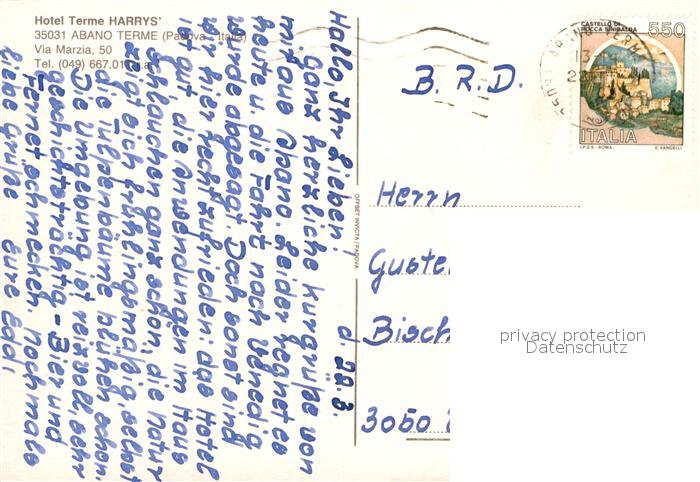 Hotel Terme HARRYS'
35031 ABANO TERME (Padova - Italia)
Via Marzia, 50
Tel. (049) 667.01
d. 22.3.
Hallo, Ihr Lieben!
Ganz herzliche Kurgrüße von
mir aus Abano. Leider regnet es
heute u. die Fahrt nach Venedig
wurde abgesagt. Doch sonst sind
wir hier recht zufrieden: das Hotel
ist gut, die Anwendungen im Haus
schlauchen ganz schön, die Natur
zeigt sich frühlingsmäßig, selbst
die Tulpenbäume blühen schon.
Die Umgebung ist reizvoll, sehr
geschichtsträchtig - Bier und
Fernet schmecken. Nochmals
liebe Grüße Eure Eddi
OFFSET INVICTA / PADOVA
B. R. D.
Herrn
Guste
Bisch
3050
CASTELLO DI
ROCCA SINIBALDA
550
ITALIA
I.P.Z.S. - ROMA E. VANGELLI
privacy protection
Datenschutz